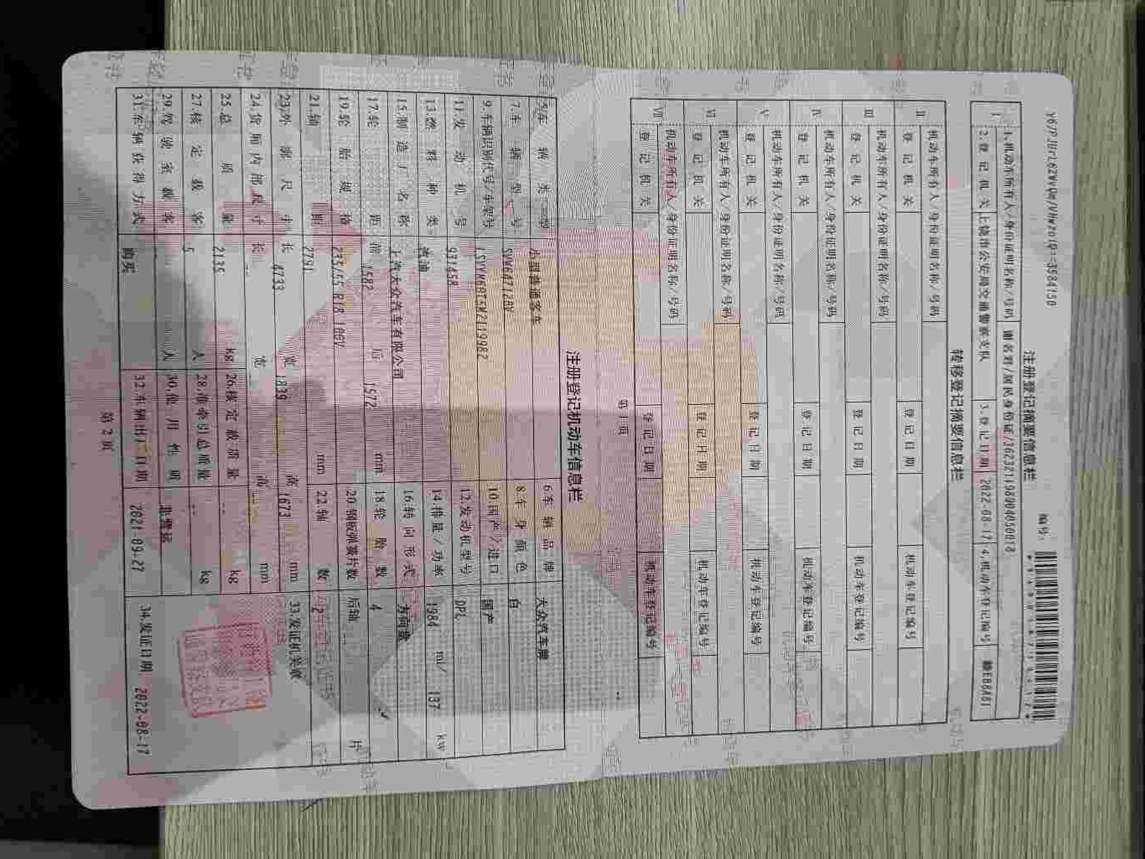 注册登记摘要信息栏
编号:
1.机动车所有人/身份证明名称/号码
2.登记机关 上饶市公安局交通警察支队 3.登记日期 2022-08-17 4.机动车登记编号 赣EB8A81
转移登记摘要信息栏
II 机动车所有人/身份证明名称/号码
登记机关 登记日期 机动车登记编号
III 机动车所有人/身份证明名称/号码
登记机关 登记日期 机动车登记编号
IV 机动车所有人/身份证明名称/号码
登记机关 登记日期 机动车登记编号
V 机动车所有人/身份证明名称/号码
登记机关 登记日期 机动车登记编号
VI 机动车所有人/身份证明名称/号码
登记机关 登记日期 机动车登记编号
VII 机动车所有人/身份证明名称/号码
登记机关 登记日期 机动车登记编号
第 1 页
注册登记机动车信息栏
5.车辆类型 小型普通客车 6.车辆品牌 大众汽车牌
7.车辆型号 8.车身颜色 白
9.车辆识别代号/车架号 10.国产/进口 国产
11.发动机号 931458 12.发动机型号 DPL
13.燃料种类 汽油 14.排量/功率 1984 ml/ 137 kw
15.制造厂名称 上汽大众汽车有限公司 16.转向形式 方向盘
17.轮距 前 1582 后 1572 mm 18.轮胎数 4
19.轮胎规格 235/55 R18 100V 20.钢板弹簧片数 后轴 -- 片
21.轴距 2791 mm 22.轴数 2
23.外廓尺寸 长 4733 宽 1839 高 1673 mm 33.发证机关章
24.货厢内部尺寸 长 -- 宽 -- 高 -- mm
25.总质量 2135 kg 26.核定载质量 -- kg
27.核定载客 5 人 28.准牵引总质量 -- kg
29.驾驶室载客 -- 人 30.使用性质 非营运
31.车辆获得方式 购买 32.车辆出厂日期 2021-09-27 34.发证日期 2022-08-17
第 2 页